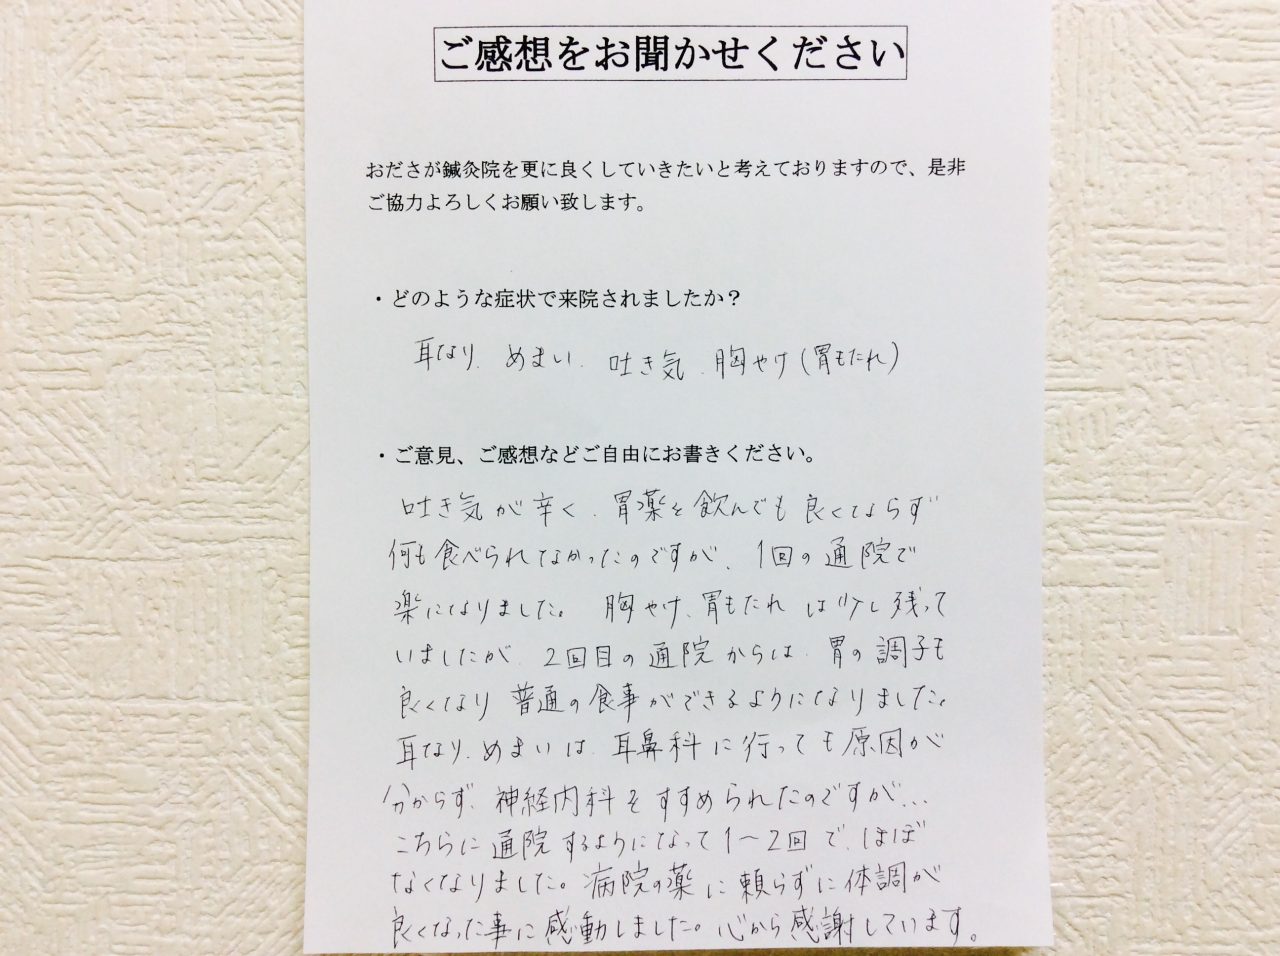 ご感想をお聞かせください
おださが鍼灸院を更に良くしていきたいと考えておりますので、是非
ご協力よろしくお願い致します。
・どのような症状で来院されましたか？
耳なり、めまい、吐き気、胸やけ(胃もたれ)
・ご意見、ご感想などご自由にお書きください。
吐き気が辛く、胃薬を飲んでも良くならず
何も食べられなかったのですが、1回の通院で
楽になりました。胸やけ、胃もたれは少し残って
いましたが、2回目の通院からは、胃の調子も
良くなり普通の食事ができるようになりました。
耳なり、めまいは、耳鼻科に行っても原因が
分からず、神経内科をすすめられたのですが...
こちらに通院するようになって1〜2回で、ほぼ
なくなりました。病院の薬に頼らずに体調が
良くなった事に感動しました。心から感謝しています。